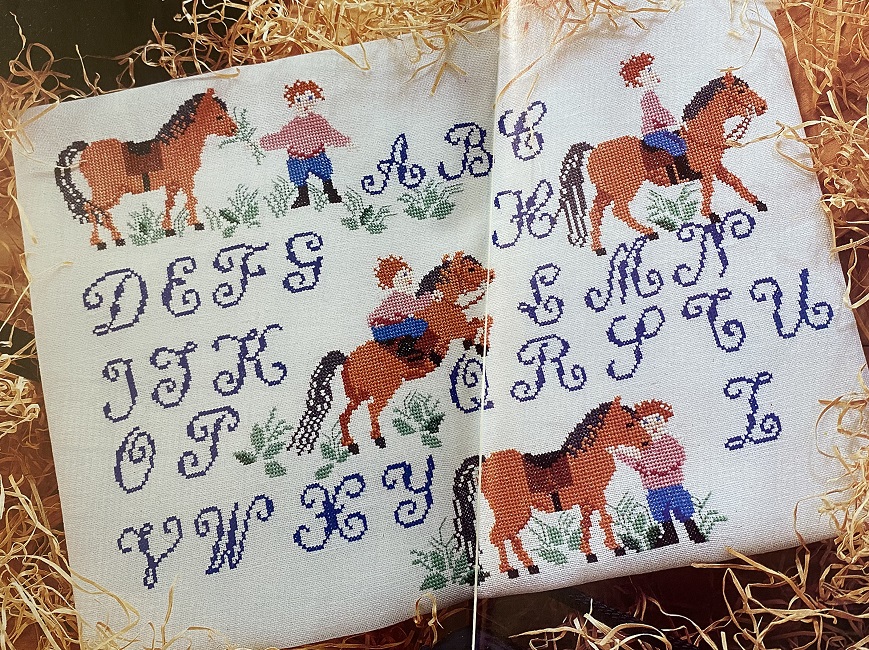 A B C
H
D E F G
L M N
I J K
Q R S T U
O P
Z
V W X Y